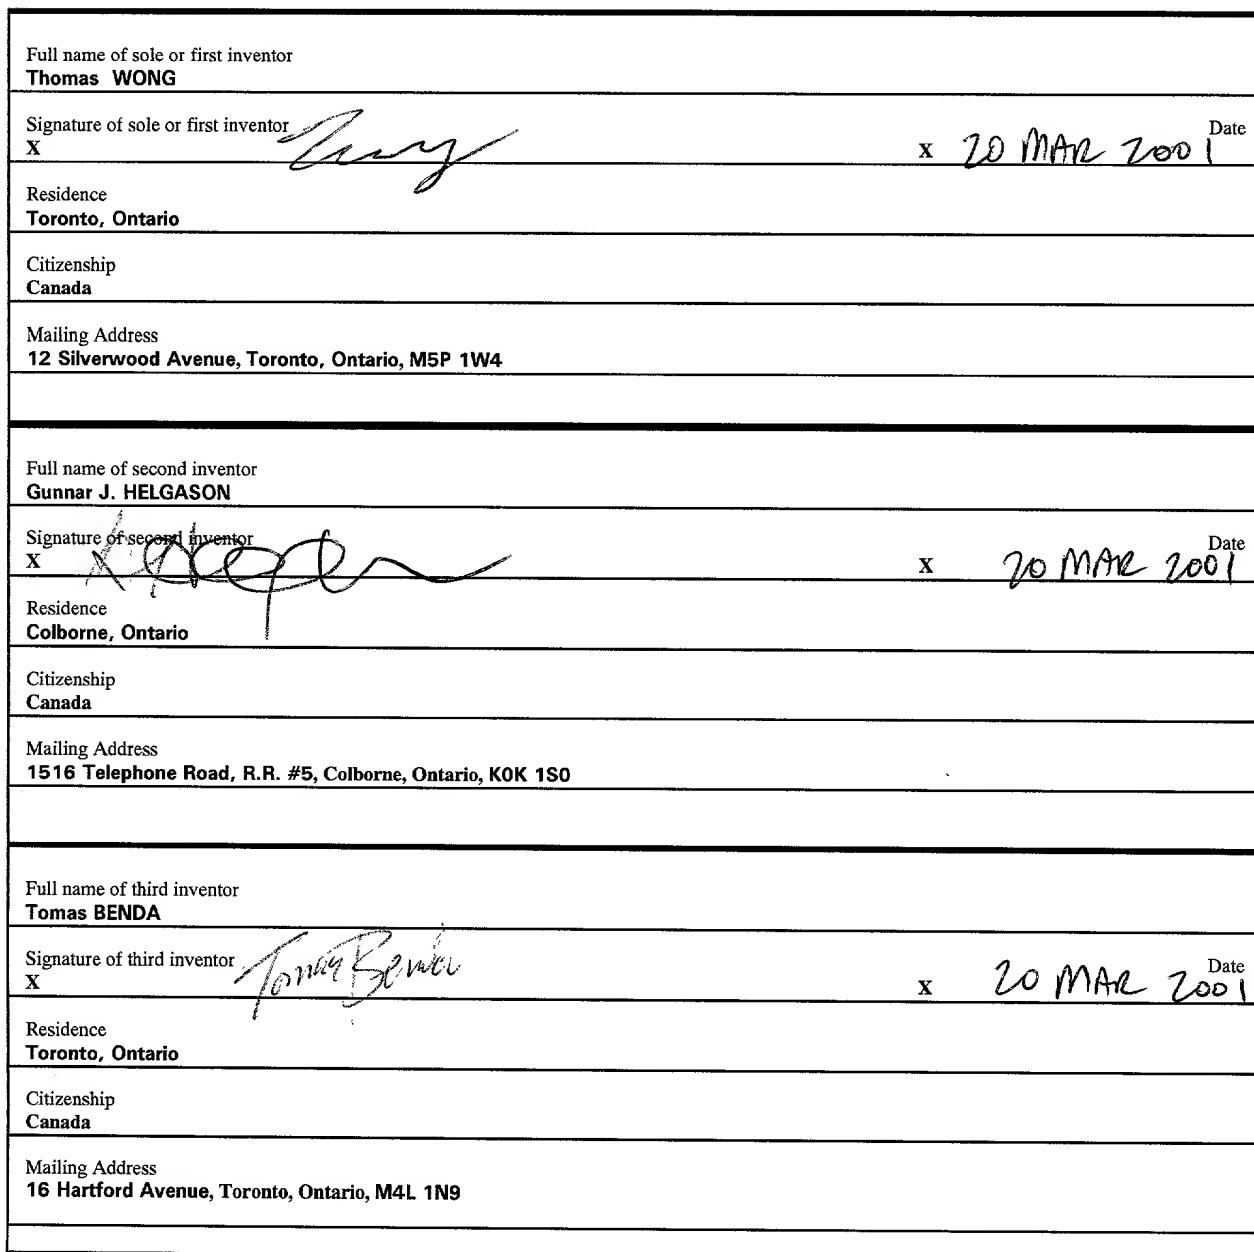 Full name of sole or first inventor
Thomas WONG
Signature of sole or first inventor
Date
X
X 20 MAR 2001
Residence
Toronto, Ontario
Citizenship
Canada
Mailing Address
12 Silverwood Avenue, Toronto, Ontario, M5P 1W4
Full name of second inventor
Gunnar J. HELGASON
Signature of second inventor
Date
X
X 20 MAR 2001
Residence
Colborne, Ontario
Citizenship
Canada
Mailing Address
1516 Telephone Road, R.R. #5, Colborne, Ontario, K0K 1S0
Full name of third inventor
Tomas BENDA
Signature of third inventor
Tomas Benda
Date
X
X 20 MAR 2001
Residence
Toronto, Ontario
Citizenship
Canada
Mailing Address
16 Hartford Avenue, Toronto, Ontario, M4L 1N9